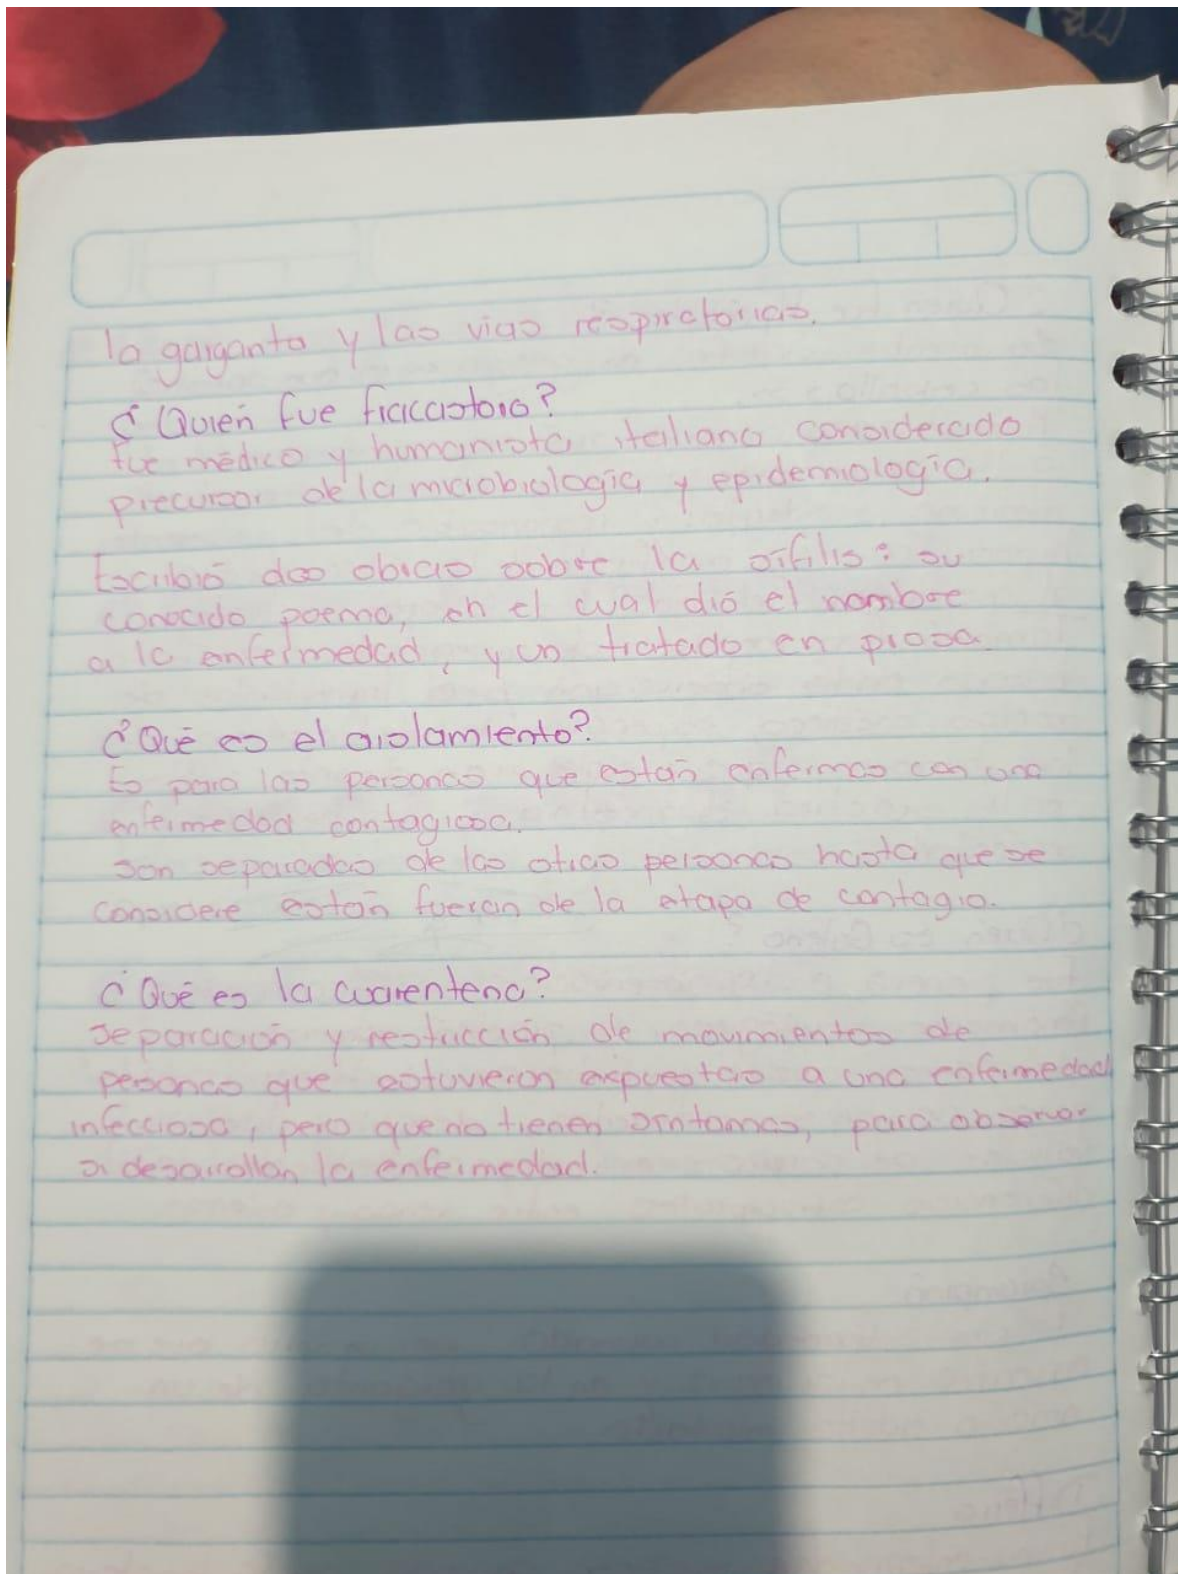 la garganta y las vias respiratorias.
¿Quién fue fracastoro?
fue médico y humanista italiano considerado
precursor de la microbiología y epidemiología.
Escribió dos obras sobre la sífilis: su
conocido poema, en el cual dió el nombre
a la enfermedad, y un tratado en prosa.
¿Qué es el aislamiento?
Es para las personas que están enfermas con una
enfermedad contagiosa.
son separadas de las otras personas hasta que se
considere están fueran de la etapa de contagio.
¿Qué es la cuarentena?
separación y restricción de movimientos de
personas que estuvieron expuestas a una enfermedad
infecciosa, pero que no tienen síntomas, para observar
si desarrollan la enfermedad.